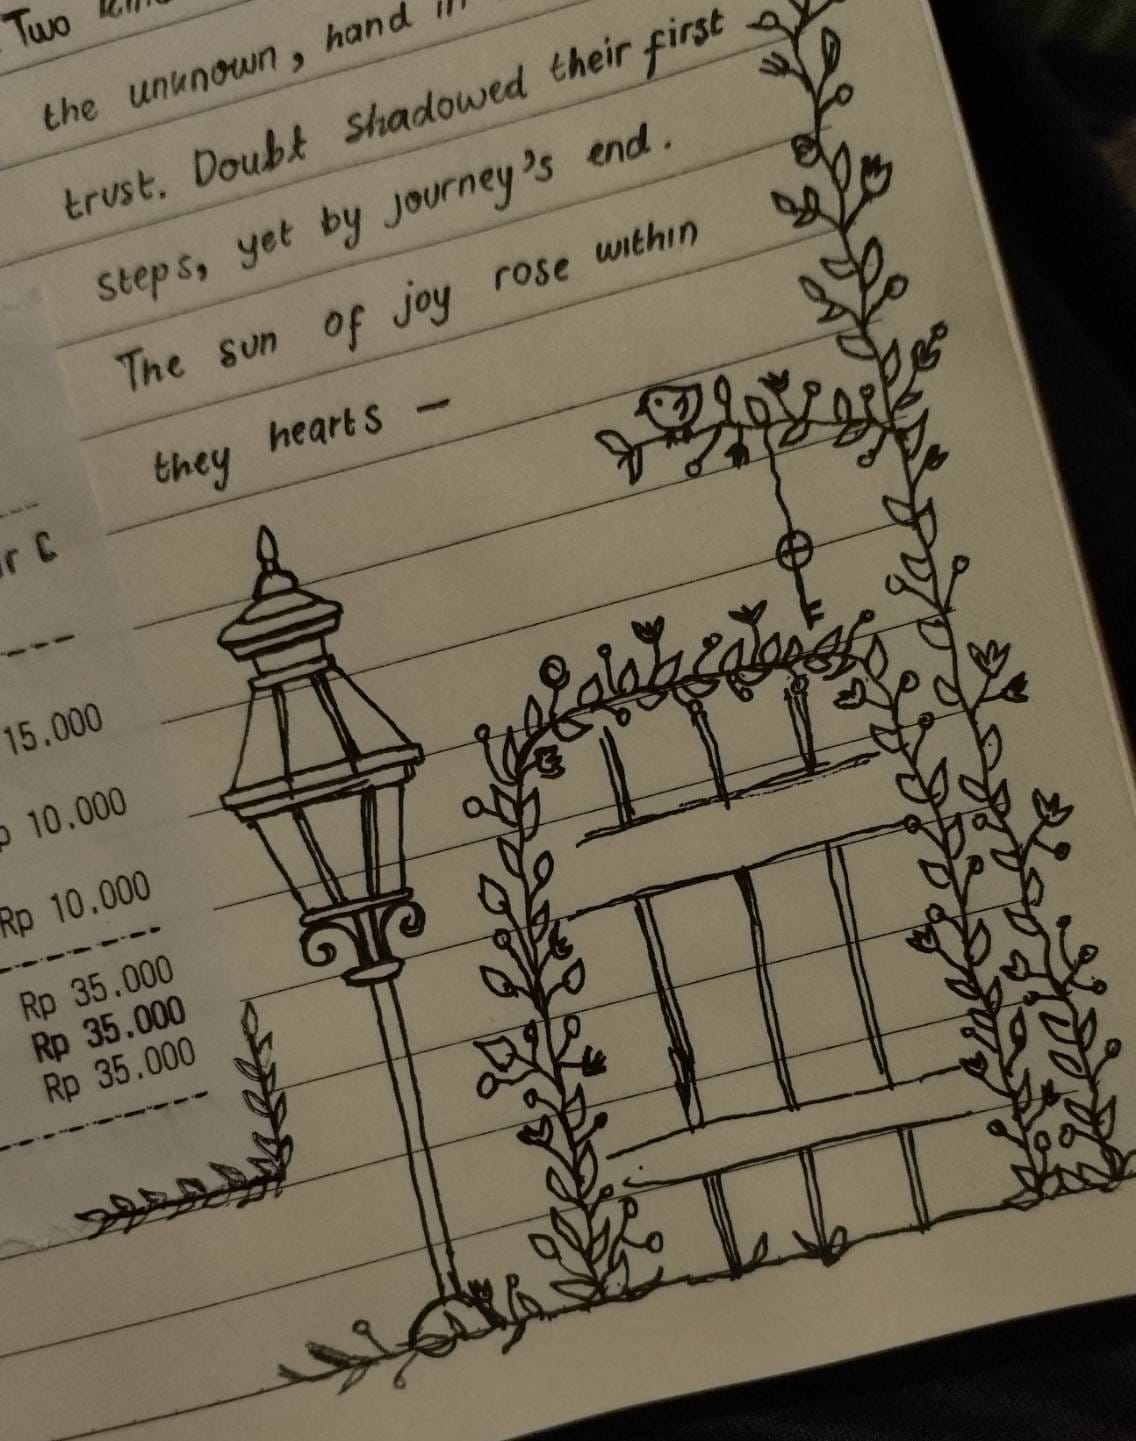 Two
the unknown, hand in
trust. Doubt shadowed their first
steps, yet by journey's end.
The sun of joy rose within
they hearts –
15.000
10.000
Rp 10.000
Rp 35.000
Rp 35.000
Rp 35.000